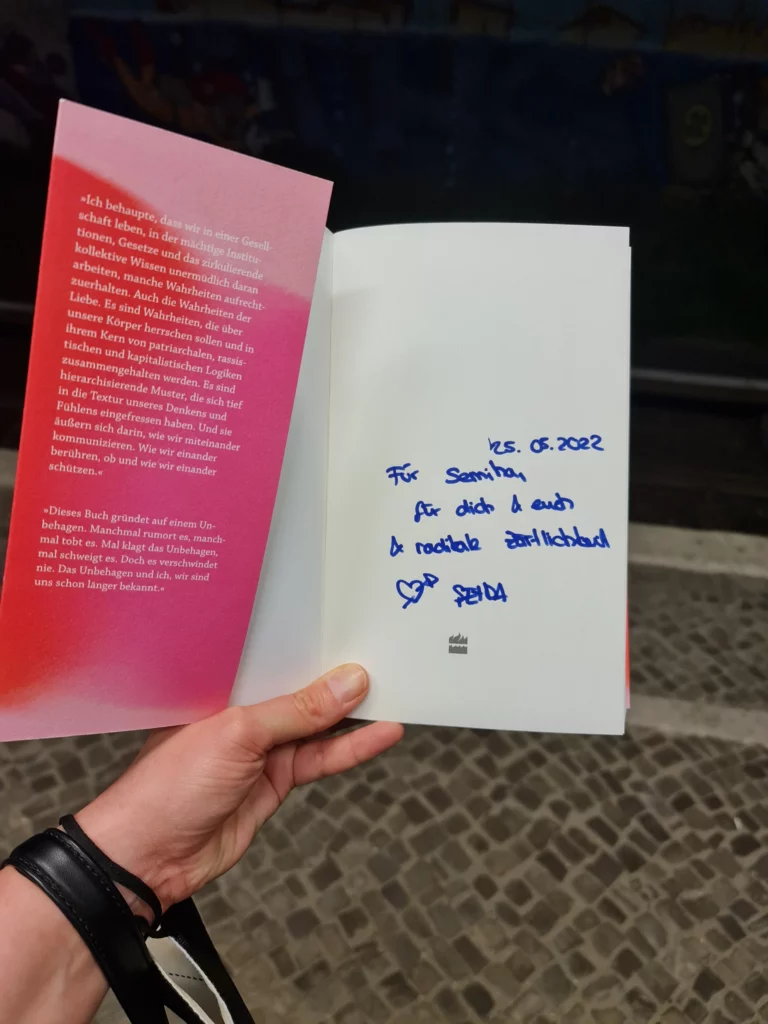 »Ich behaupte, dass wir in einer Gesell-
schaft leben, in der mächtige Institu-
tionen, Gesetze und das zirkulierende
kollektive Wissen unermüdlich daran
arbeiten, manche Wahrheiten aufrecht-
zuerhalten. Auch die Wahrheiten der
Liebe. Es sind Wahrheiten, die über
unsere Körper herrschen sollen und in
ihrem Kern von patriarchalen, rassis-
tischen und kapitalistischen Logiken
zusammengehalten werden. Es sind
hierarchisierende Muster, die sich tief
in die Textur unseres Denkens und
Fühlens eingefressen haben. Und sie
äußern sich darin, wie wir miteinander
kommunizieren. Wie wir einander
berühren, ob und wie wir einander
schützen.«
»Dieses Buch gründet auf einem Un-
behagen. Manchmal rumort es, manch-
mal tobt es. Mal klagt das Unbehagen,
mal schweigt es. Doch es verschwindet
nie. Das Unbehagen und ich, wir sind
uns schon länger bekannt.«
25. 05. 2022
Für Semiha,
für dich & euch
& radikale Zärtlichkeit
ŞEYDA